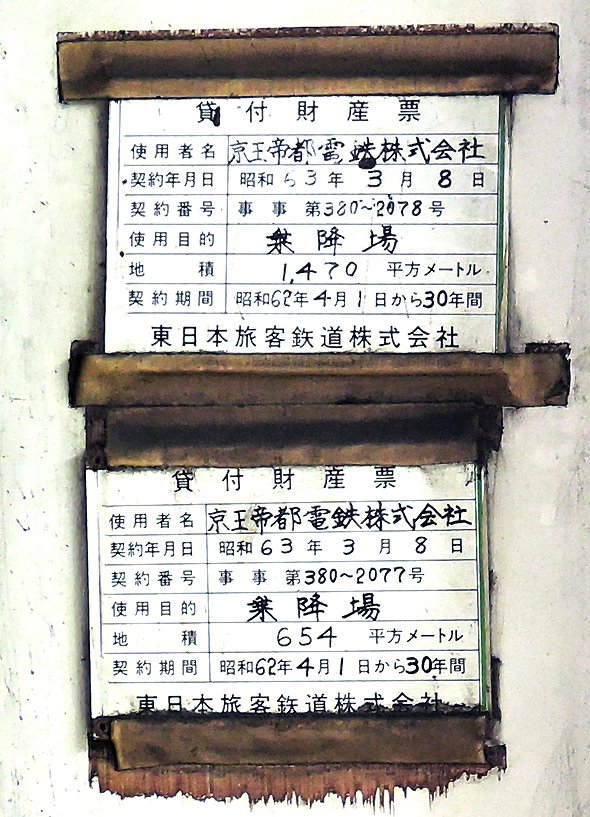 貸付財産票
使用者名 京王帝都電鉄株式会社
契約年月日 昭和63年3月8日
契約番号 事事第380～2078号
使用目的 乗降場
地積 1,470 平方メートル
契約期間 昭和62年4月1日から30年間
東日本旅客鉄道株式会社
貸付財産票
使用者名 京王帝都電鉄株式会社
契約年月日 昭和63年3月8日
契約番号 事事第380～2077号
使用目的 乗降場
地積 654 平方メートル
契約期間 昭和62年4月1日から30年間
東日本旅客鉄道株式会社